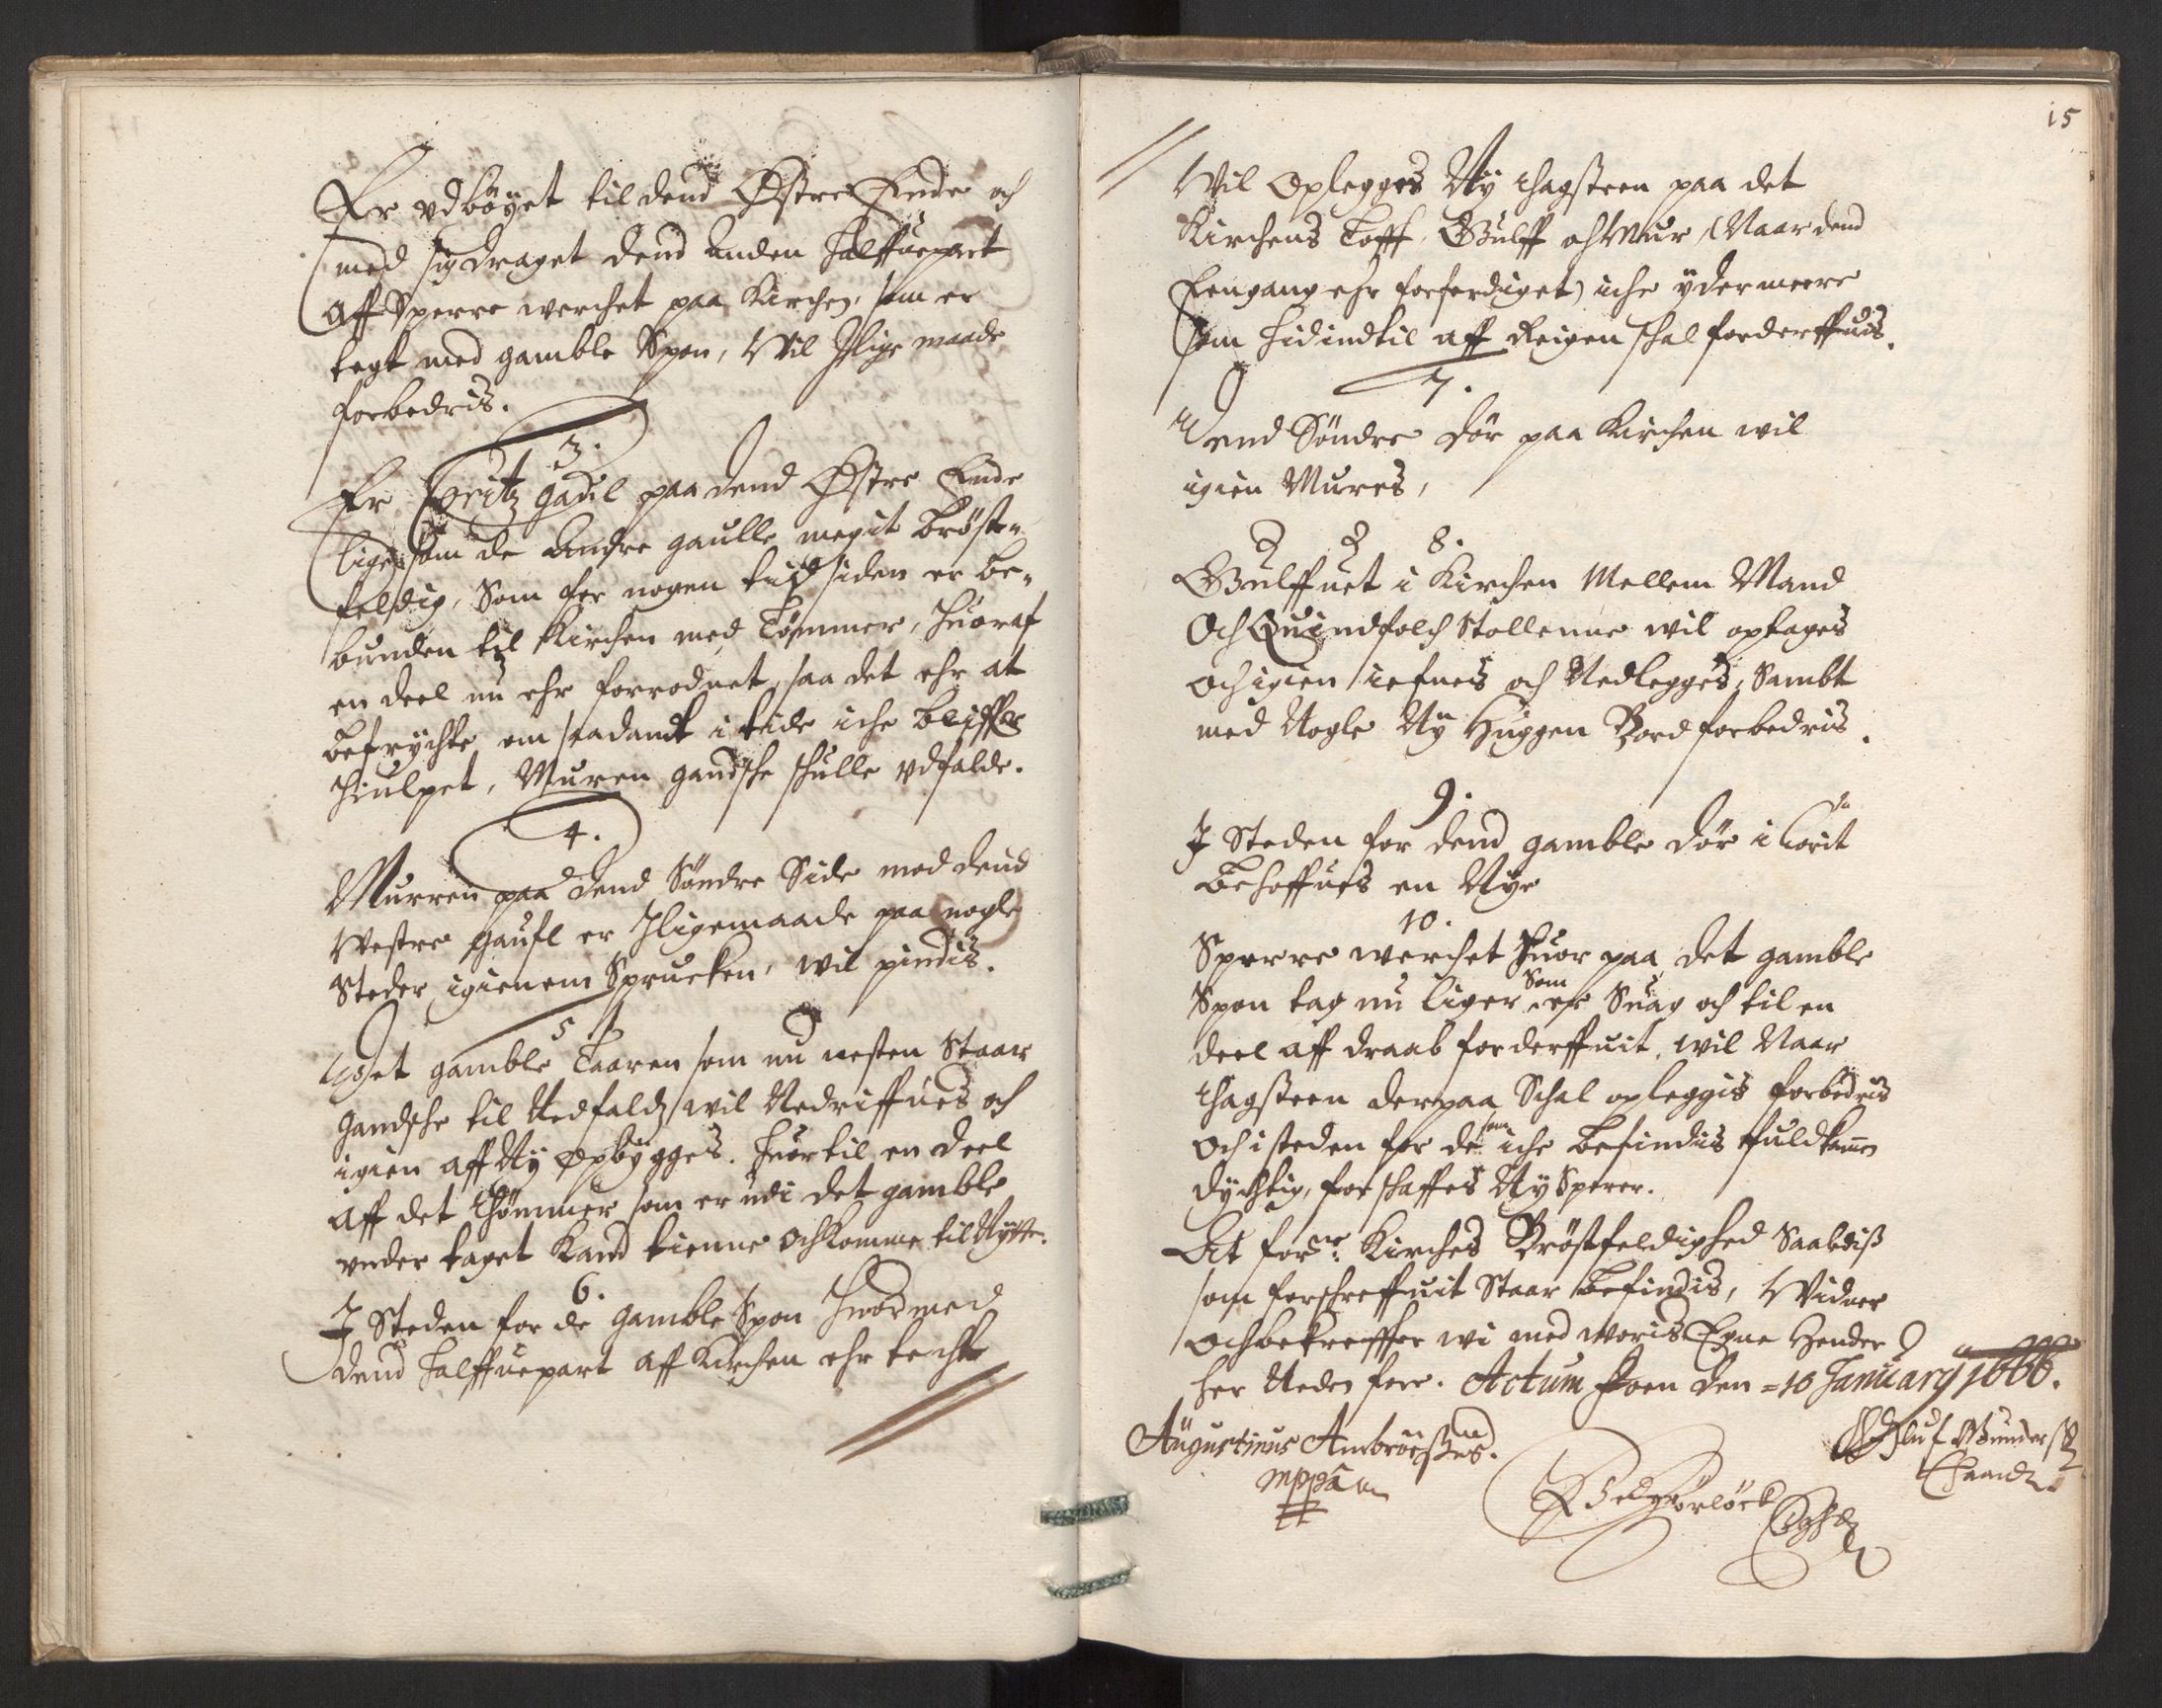 Er udbøyet til dend Østre Ende och
med sig draget dend anden halffuepart
aff Sperre werchet paa Kirchen, som er
tegt med gamble Spon, Wil Jlige maade
forbedris.
3.
Er Coritz gaul paa dend Østre Ende
lige som de andre gaulle megit brøst-
feldig, Som for nogen tid siden er be-
bunden til Kirchen med Tømmer, huoraf
en deel nu ehr forrodnet, saa det ehr at
befrychte, om saadandt i tide iche bliffr
hiulpet, Muren gandsche schulle udfalde.
4.
Murren paa dend Søndre Side mod dend
Westre gaufl er Jligemaade paa nogle
Steder igienem Sprucken, wil pindis.
5.
Det gamble Taaren som nu nesten Staar
gandsche til Nedfald, wil Nedriffues och
igien aff Ny Opbygges. huortil en deel
aff det thømmer som er udi det gamble
under taget Kand tienne och komme til Nytte.
6.
J Steden for de gamble Spon huormed
dend halffuepart aff Kirchen ehr techt
15
Wil Oplegges Ny thagsteen paa det
Kirchens Lofft, Gulff och Mur (Naar dend
Eengang ehr forferdiget) iche ydermeere
som hidindtil aff Reigen schal forderffuis.
7.
Dend Søndre dør paa Kirchen wil
igien Mures,
8.
Gulffuet i Kirchen Mellem Mand
Och Quindfolch Stollenne wil optages
och igien iefneis och Nedlegges, Sambt
med Nogle Ny Huggen Bord forbedris.
9.
J Steden for dend gamble dør i Corit
Behøffues en Nye
10.
Sperre werchet huor paa det gamble
Spon tag nu liger Som er Suag och til en
deel aff draab forderffuit, wil Naar
thagsteen derpaa Schal opleggis forbedris
Och i steden for de som iche befindis fuldkommen
dychtig, forschaffes Ny Sperer.
At forne: Kirches Brøstfeldighed Saaledis
som forschreffuit Staar befindis, Widner
och bekreffter wi med woris Egne Hender
her Neden for. Actum den = 10 January 1666.
Augustinus Ambroesßen.
mppa
Oluf Gunders